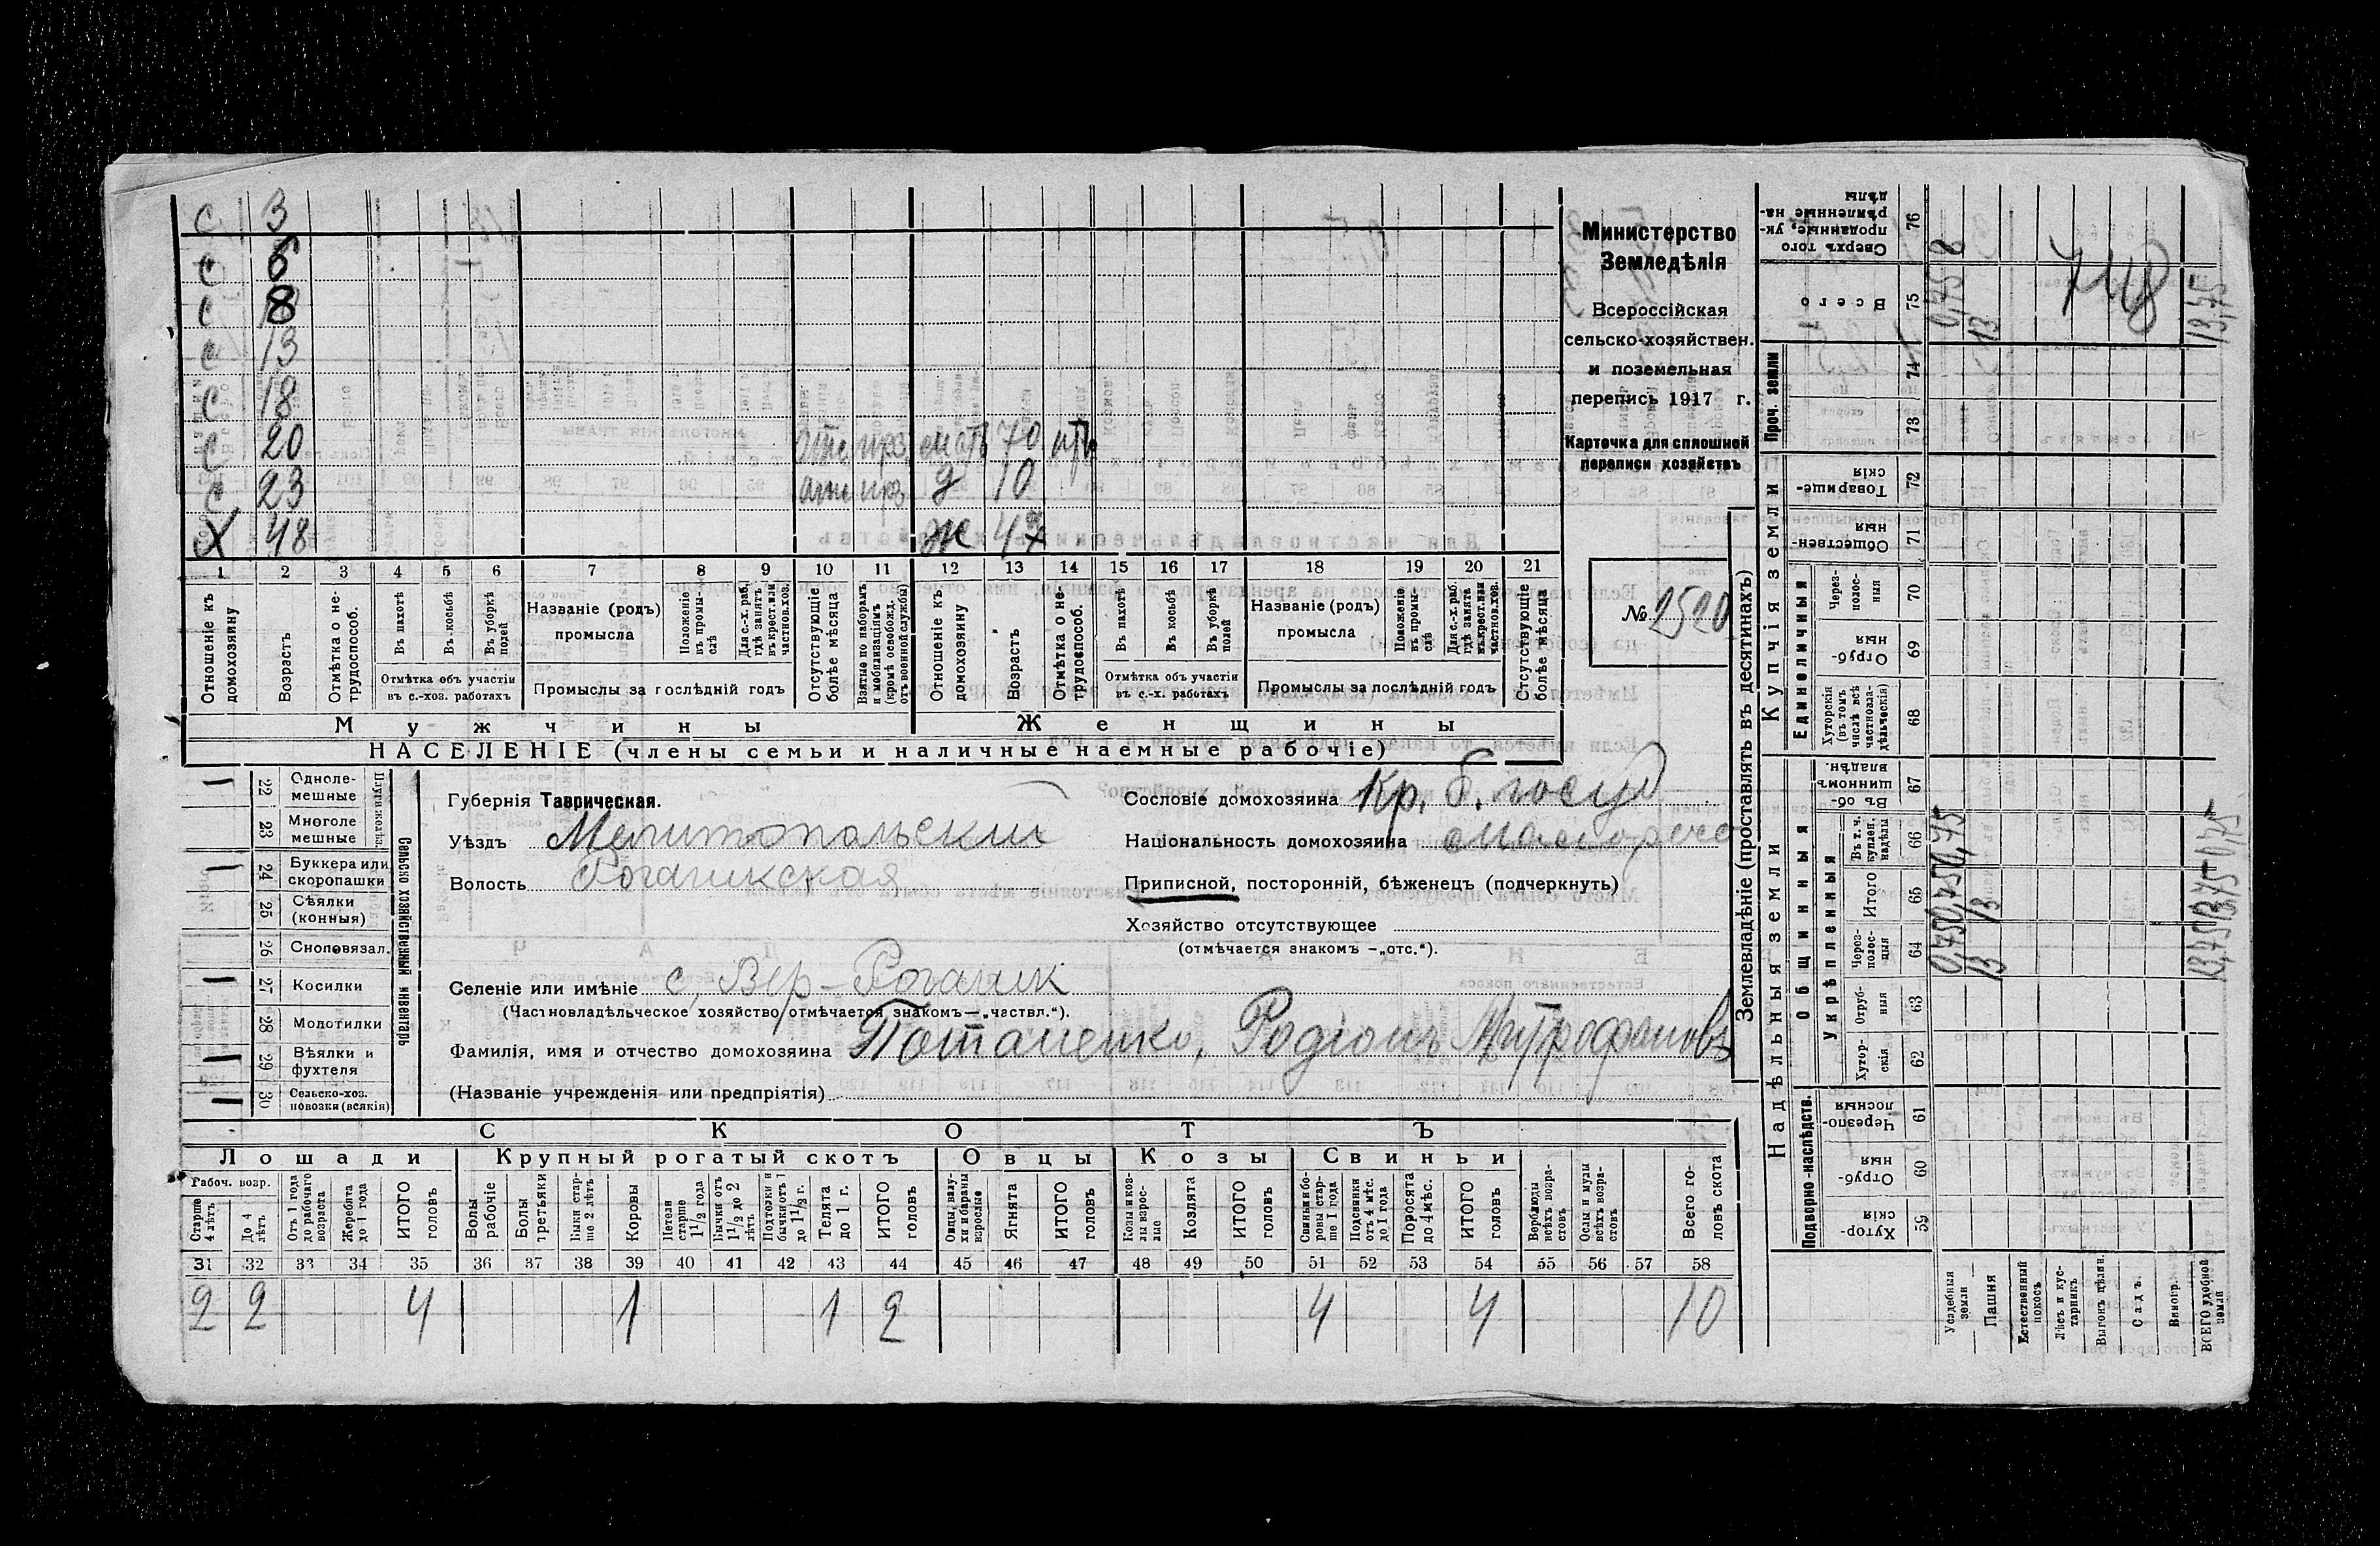 с 3
с 6
с 8
с 13
с 18
с 20 отс. прз. мать 70 нтр
с 23 отс. прз. д 10
Х 48 ж 47
1 2 3 4 5 6 7 8 9 10 11 12 13 14 15 16 17 18 19 20 21
Отношеніе къ домохозяину
Возрастъ
Отмѣтка о нетрудоспособ.
Въ пахотѣ
Въ косьбѣ
Въ уборкѣ полей
Отмѣтка объ участіи въ с.-хоз. работахъ
Названіе (родъ) промысла
Положеніе въ промыслѣ
Для с.-х. раб. гдѣ занятъ въ крест. или частнов. хоз.
Промыслы за послѣдній годъ
Отсутствующіе болѣе мѣсяца
Взятые по наборамъ и мобилизаціямъ (кромѣ освобожд. отъ военной службы)
Отношеніе къ домохозяину
Возрастъ
Отмѣтка о нетрудоспособ.
Въ пахотѣ
Въ косьбѣ
Въ уборкѣ полей
Отмѣтка объ участіи въ с.-х. работахъ
Названіе (родъ) промысла
Положеніе въ промыслѣ
Для с.-х. раб. гдѣ занята въ крест. или частнов. хоз.
Промыслы за послѣдній годъ
Отсутствующіе болѣе мѣсяца
Мужчины Женщины
НАСЕЛЕНІЕ (члены семьи и наличные наемные рабочіе)
Министерство
Земледѣлія
Всероссійская
сельско-хозяйствен.
и поземельная
перепись 1917 г.
Карточка для сплошной
переписи хозяйствъ
№ 2520
Сельско хозяйственный инвентарь
Плуги желѣз.
22 Однолемешные
23 Многолемешные
24 Буккера или скоропашки
25 Сѣялки (конныя)
26 Сноповязал.
27 Косилки
28 Молотилки
29 Вѣялки и фухтеля
30 Сельско-хоз. повозки (всякія)
Губернія Таврическая.
Уѣздъ Мелитопольскій
Волость Рогачикская
Селеніе или имѣніе с. Вер-Рогачик
(Частновладѣльческое хозяйство отмѣчается знакомъ—„частвл.“).
Фамилія, имя и отчество домохозяина Потапенко, Родіонъ Митрофановъ
(Названіе учрежденія или предпріятія)
Сословіе домохозяина Кр. б. госуд
Національность домохозяина малоросс
Приписной, посторонній, бѣженецъ (подчеркнуть)
Хозяйство отсутствующее
(отмѣчается знакомъ —„отс.“).
СКОТЪ
Лошади Крупный рогатый скотъ Овцы Козы Свиньи
Рабоч. возр.
Старше 4 лѣтъ
До 4 лѣтъ
Отъ 1 года до рабочаго возраста
Жеребята до 1 года
ИТОГО головъ
Волы рабочіе
Волы третьяки
Быки старше 2 лѣтъ
Коровы
Нетели старше 1 1/2 года
Бычки отъ 1 1/2 до 2 лѣтъ
Подтелки и бычки отъ 1 до 1 1/2 г.
Телята до 1 г.
ИТОГО головъ
Овцы, валухи и бараны взрослые
Ягнята
ИТОГО головъ
Козы и козлы взрослые
Козлята
ИТОГО головъ
Свиньи и боровы старше 1 года
Подсвинки отъ 4 мѣс. до 1 года
Поросята до 4 мѣс.
ИТОГО головъ
Верблюды всѣхъ возрастовъ
Ослы и мулы всѣхъ возрастовъ
Всего головъ скота
31 32 33 34 35 36 37 38 39 40 41 42 43 44 45 46 47 48 49 50 51 52 53 54 55 56 57 58
2 2 4 1 1 2 4 4 10
Землевладѣніе (проставлять въ десятинахъ)
Надѣльныя земли Купчія земли Проч. земли
Подворно-наслѣдств. Общинныя Единоличныя
Укрѣпленныя
Хуторскія 59
Отрубныя 60
Черезполосныя 61
Хуторскія 62
Отрубныя 63
Черезполосныя 64
Итого 65
Въ т. ч. куплен. надѣлы 66
Въ общинномъ владѣн. 67
Хуторскія (въ томъ числѣ всѣ частновладѣльческія) 68
Отрубныя 69
Черезполосныя 70
Общественныя 71
Товарищескія 72
73
74
Всего 75
Сверхъ того проданные, укрѣпленные надѣлы 76
Усадебныя земли 0,75 0,75 0,75 0,75 8
Пашня 13 13 13
Естественный покосъ
Лѣсъ и кустарникъ
Выгонъ цѣлин.
Садъ.
Виногр.
ВСЕГО удобной земли 13,75 13,75 0,75 13,75
748